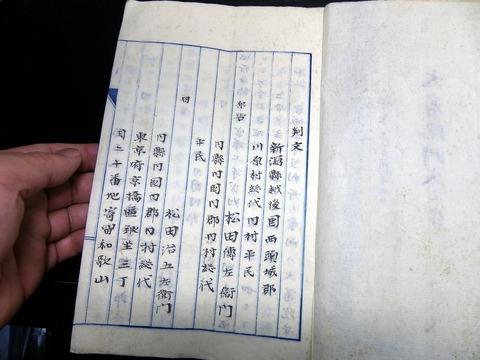 判文
新潟縣越後国西頸城郡
川原村総代同村平民
原告 松田傳左衛門
同縣同国同郡同村総代
平民
同 松田治五左衛門
同縣同国同郡同村総代
東京府京橋區銀座三丁
目二十番地寄留和歌山